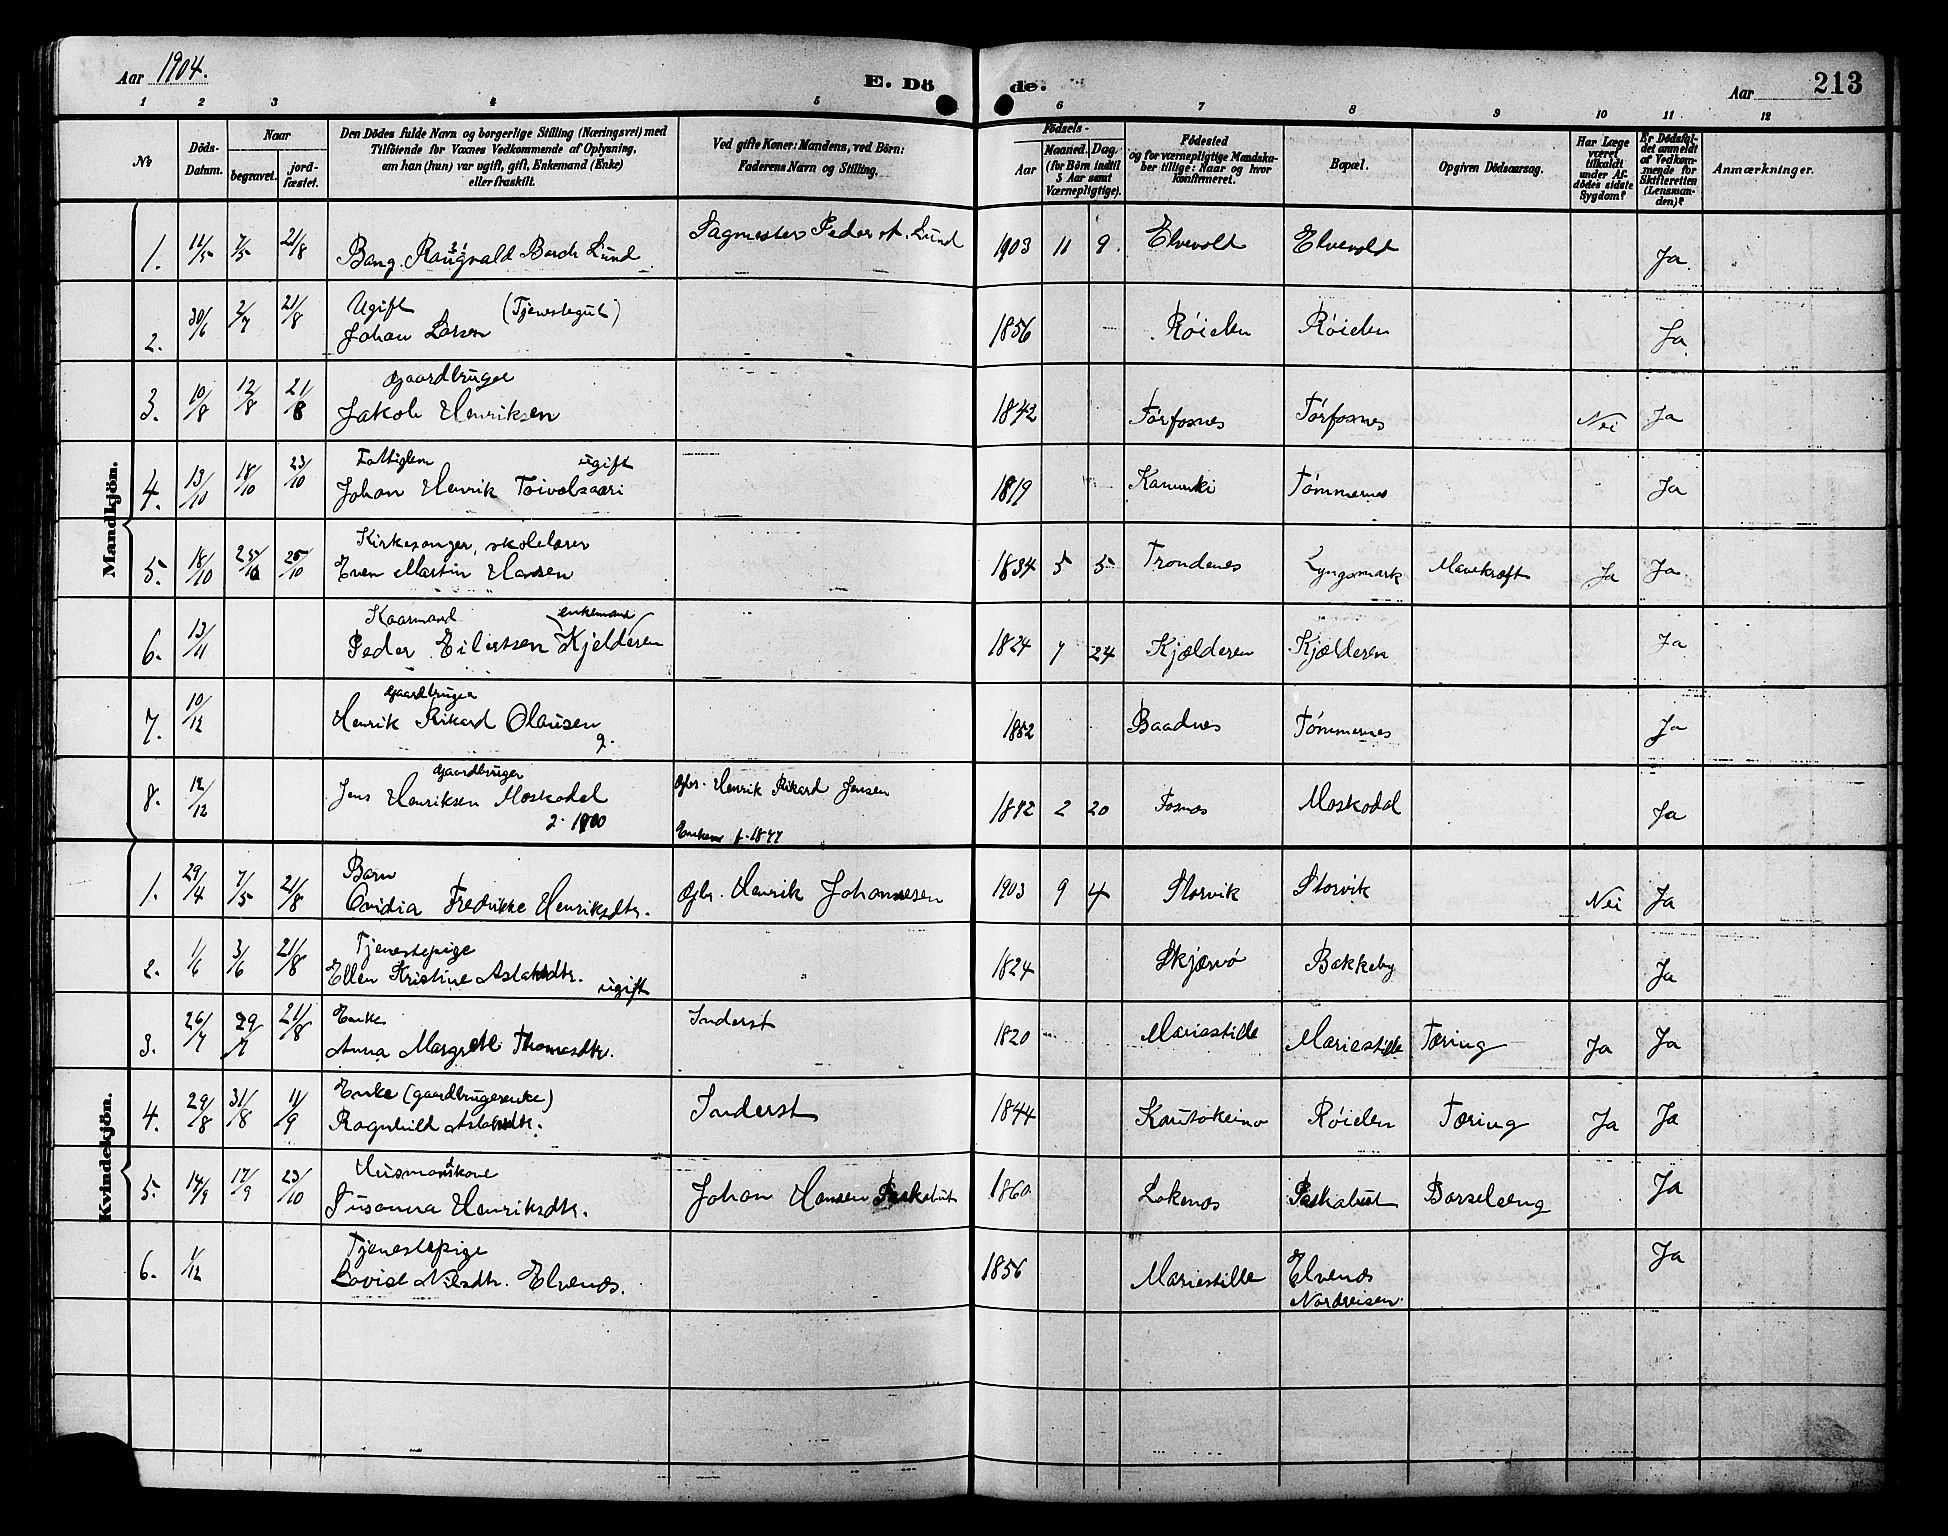 Aar 1904.
E. Dö
de.
Aar
213
1 2 3 4 5 6 7 8 9 10 11 12
No
Döds-
Datum.
Naar
begravet.
jord-
fæstet.
Den Dödes fulde Navn og borgerlige Stilling (Næringsvei) med
Tilföiende for Voxnes Vedkommende af Oplysning,
om han (hun) var ugift, gift, Enkemand (Enke)
eller fraskilt.
Ved gifte Koner: Mandens, ved Börn:
Faderens Navn og Stilling.
Födsels-
Aar
Maaned.
Dag.
(for Börn indtil
5 Aar samt
Værnepligtige).
Födested
og for værnepligtige Mandska-
ber tillige: Naar og hvor
konfirmeret.
Bopæl.
Opgiven Dödsaarsag.
Har Læge
været
tilkaldt
under Af-
dödes sidste
Sygdom?
Er Dödsfal-
det anmeldt
af Vedkom-
mende for
Skifteretten
(Lensman-
den)?
Anmærkninger.
Mandkjön.
1. 7/5 21/8 Rangvald Lund Peder Lund 1903 11 9. Elvevold Elvevold Ja
2. 30/6 2/7 21/8 Ugift (Tjenestegut)
Johan Larsen 1856 Röielen Röielen Ja
3. 10/8 12/8 21/8 Gaardbruger
Jakob Henriksen 1842 Törfosnes Törfosnes Nei Ja
4. 13/10 18/10 23/10 Fattiglem ugift
Johan Henrik 1819 Tömmernes Ja
5. 18/10 25/10 25/10 Kirkesanger, skolelærer
Even Martin Hansen 1834 5 5 Trondenes Lyngsmark Mavekræft Ja Ja
6. 13/11 Kaarmand enkemand
Peder Eilertsen Kjelderen 1824 7 24 Kjælderen Kjælderen Ja
7. 10/12 Gaardbruger
Henrik Rikard Olausen
g. 1852 Baadnes Tömmernes Ja
8. 12/12 Gaardbruger
Jens Henriksen Moskodal Gbr. Henrik Rikard Jensen
2. 1900 f. 1877 2 20 Fosnes Moskodal Ja
Kvindekjön.
1. 29/4 7/5 21/8 Barn
Ovidia Fredrikke Henriksdtr. Gbr. Henrik Johannesen 1903 9 4 Storvik Storvik Nei Ja
2. 1/6 3/6 21/8 Tjenestepige
Ellen Kristine Aslaksdtr. ugift 1824 Skjærvö Bakkeby Ja
3. 26/7 29/7 21/8 Enke
Anna Margrete Thomasdtr. Inderst 1820 Mariestille Mariestille Tæring Ja Ja
4. 29/8 31/8 11/9 Enke (gaardbrugerenke)
Ragnhild Aslaksdtr. Inderst 1844 Kautokeino Röielen Tæring Ja Ja
5. 14/9 17/9 23/10 Husmandskone
Susanna Henriksdtr. Johan Hansen Paskabut 1860 Lokenes Paskabut Barselseng Ja
6. 1/12 Tjenestepige
Lovise Nilsdtr. Elvenes. 1856 Mariestille Elvenes
Nordreisen. Ja